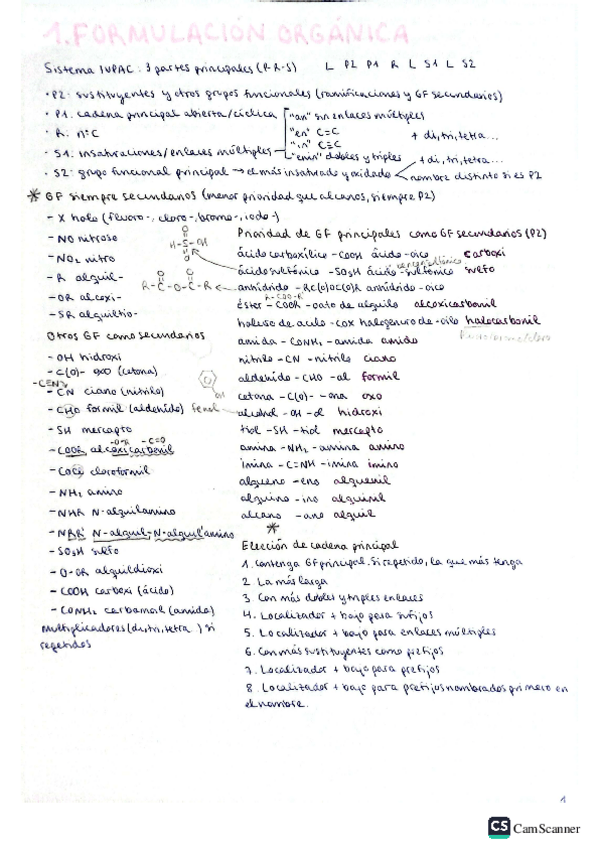 1. FORMULACIÓN ORGÁNICA
Sistema IUPAC: 3 partes principales (P-R-S) L P2 P1 R L S1 L S2
· P2: sustituyentes y otros grupos funcionales (ramificaciones y GF secundarios)
· P1: cadena principal abierta/cíclica
· R: nºC
· S1: insaturaciones/enlaces múltiples
"an" sin enlaces múltiples
"en" C=C
"in" C≡C
"enin" dobles y triples
+ di, tri, tetra...
· S2: grupo funcional principal → el más insaturado y oxidado
+ di, tri, tetra...
nombre distinto si es P2
* GF siempre secundarios (menor prioridad que alcanos, siempre P2)
- X halo (fluoro-, cloro-, bromo-, iodo-)
- NO nitroso
- NO2 nitro
- R alquil-
- OR alcoxi-
- SR alquiltio-
O
H-S-OH
O
O O
R-C-O-C-R
Otros GF como secundarios
- OH hidroxi
- C(O)- oxo (cetona)
-C≡N
- CN ciano (nitrilo)
- CHO formil (aldehído)
- SH mercapto
-O-R -C=O
- COOR alcoxicarbonil
- COCl cloroformil
- NH2 amino
- NHR N-alquilamino
- NRR' N-alquil-N-alquil'amino
- SO3H sulfo
- O-OR alquildioxi
- COOH carboxi (ácido)
- CONH2 carbamoil (amida)
Multiplicadores (di, tri, tetra) si
repetidos
Prioridad de GF principales como GF secundarios (P2)
ácido carboxílico -COOH ácido -oico carboxi
ácido sulfónico -SO3H ácido -sulfónico sulfo
anhídrido -RC(O)OC(O)R anhídrido -oico
R-COO-R'
éster -COOR -oato de alquilo alcoxicarbonil
haluro de acilo -COX halogenuro de -oilo halocarbonil
amida -CONH2 -amida amido
nitrilo -CN -nitrilo ciano
aldehído -CHO -al formil
cetona -C(O)- -ona oxo
OH
fenol
alcohol -OH -ol hidroxi
tiol -SH -tiol mercapto
amina -NH2 -amina amino
imina -C=NH -imina imino
alqueno -eno alquenil
alquino -ino alquinil
alcano -ano alquil
*
Elección de cadena principal
1. Contenga GF principal. Si repetido, la que más tenga
2 La más larga
3. Con más dobles y triples enlaces
4. Localizador + bajo para sufijos
5. Localizador + bajo para enlaces múltiples
6. Con más sustituyentes como prefijos
7. Localizador + bajo para prefijos
8. Localizador + bajo para prefijos nombrados primero en
el nombre.
1
CS CamScanner